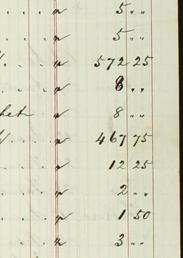 " 5 " "
" 5 " "
" 572 25
" 8 " "
het " 8 " "
" 467 75
" 12 25
" 2 " "
" 1 50
" 3 " "